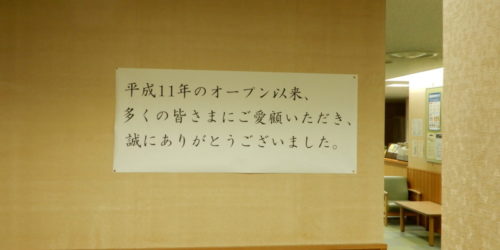 平成11年のオープン以来、
多くの皆さまにご愛顧いただき、
誠にありがとうございました。